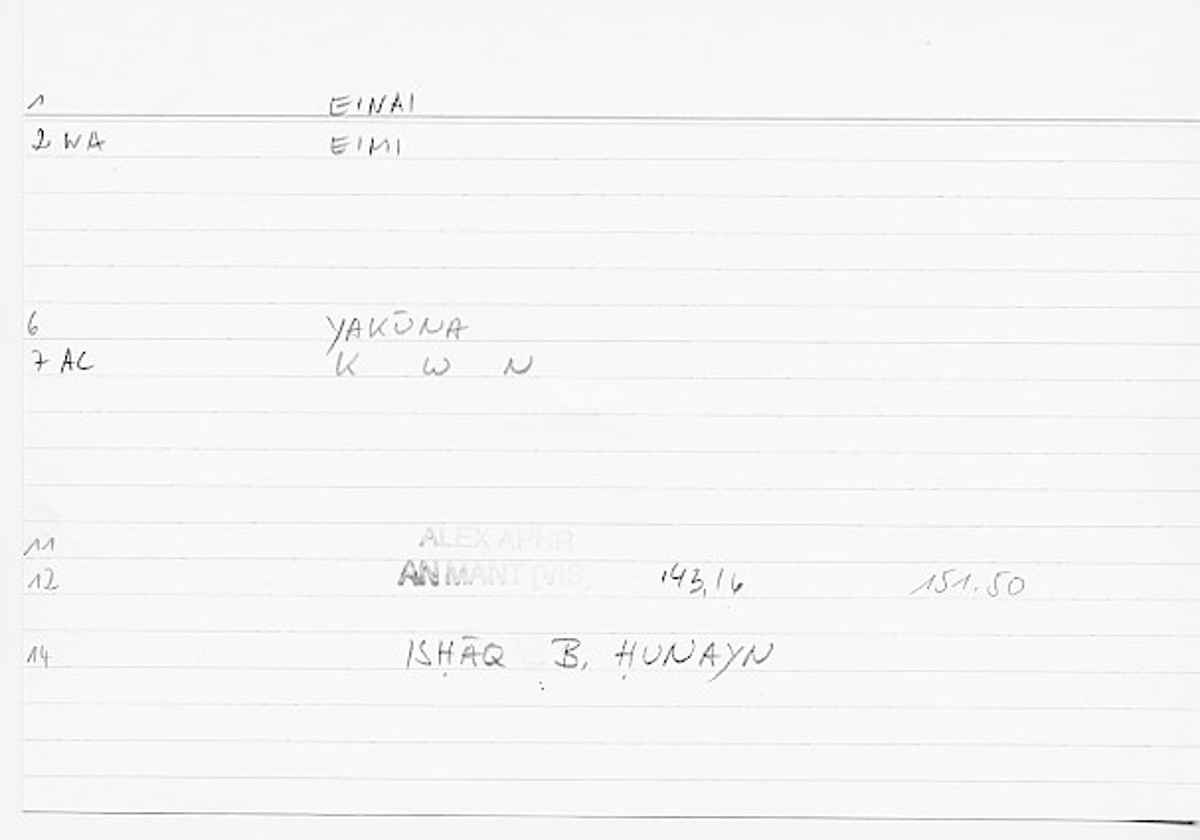 1 EINAI
2 WA EIMI
6 YAKŪNA
7 AC K W N
11 ALEX APHR
12 AN MANT [VIS] 143,16 151.50
14 ISḤĀQ B. ḤUNAYN